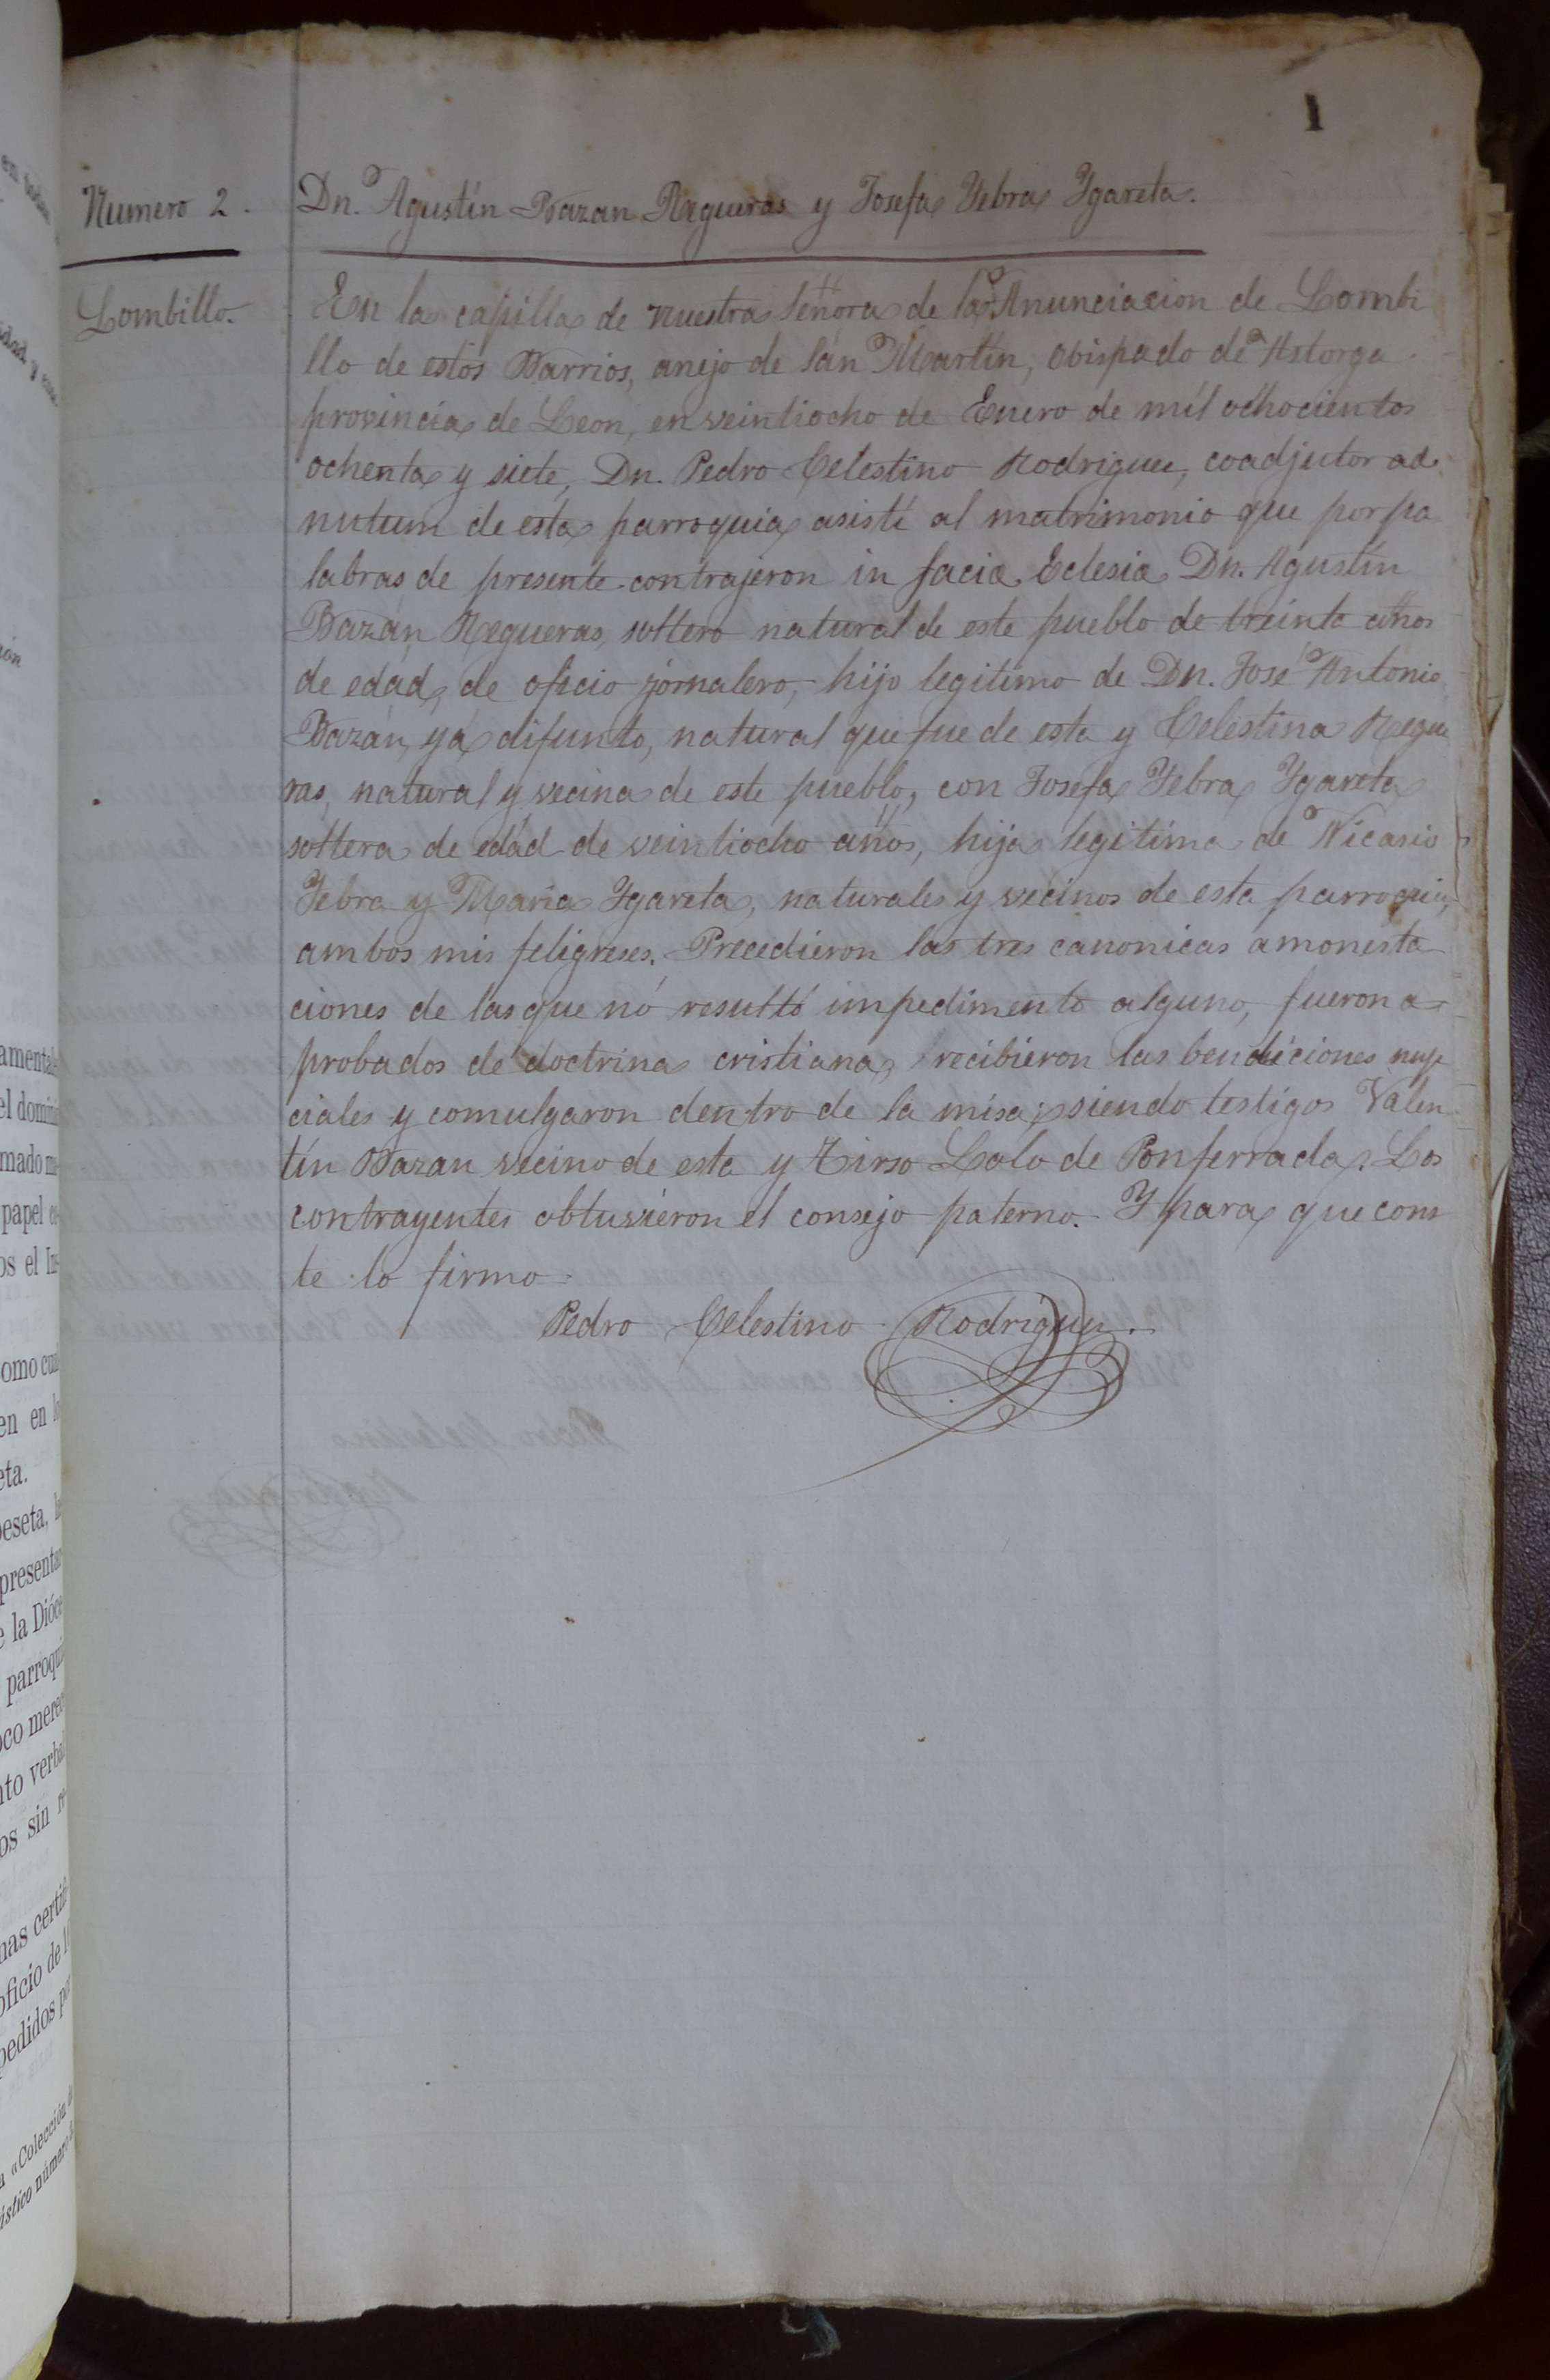 1
Numero 2.
Dn. Agustín Bazan Regueras y Josefa Yebra Ygareta.
Lombillo.
En la capilla de nuestra Señora de la Anunciacion de Lombi
llo de estos Barrios, anejo de San Martin, obispado de Astorga
provincia de Leon, en veintiocho de Enero de mil ochocientos
ochenta y siete, Dn. Pedro Celestino Rodriguez, coadjutor ad
nutum de esta parroquia asistí al matrimonio que por pa
labras de presente contrajeron in facie Eclesie Dn. Agustín
Bazán Regueras, soltero natural de este pueblo de treinta años
de edad, de oficio jornalero, hijo legitimo de Dn. José Antonio
Bazán, yá difunto, natural que fue de esta y Celestina Regue
ras, natural y vecina de este pueblo, con Josefa Yebra Ygareta
soltera de edad de veintiocho años, hija legitima de Nicasio
Yebra y Maria Ygareta, naturales y vecinos de esta parroquia,
ambos mis feligreses. Precedieron las tres canonicas amonesta
ciones de las que nó resultó impedimento alguno, fueron a
probados de doctrina cristiana, recibieron las bendiciones nup
ciales y comulgaron dentro de la misa; siendo testigos Valen
tín Bazan vecino de esta y Tirso Lolo de Ponferrada. Los
contrayentes obtuvieron el consejo paterno. Y para que cons
te lo firmo.
Pedro Celestino Rodriguez.
amental
el domini
mado
papel
os el In
omo
en en
eta.
peseta,
presenta
e la Dióc
parroqui
oco mere
nto verb
os sin
nas certifi
oficio de
pedidos
a «Colección
ístico número